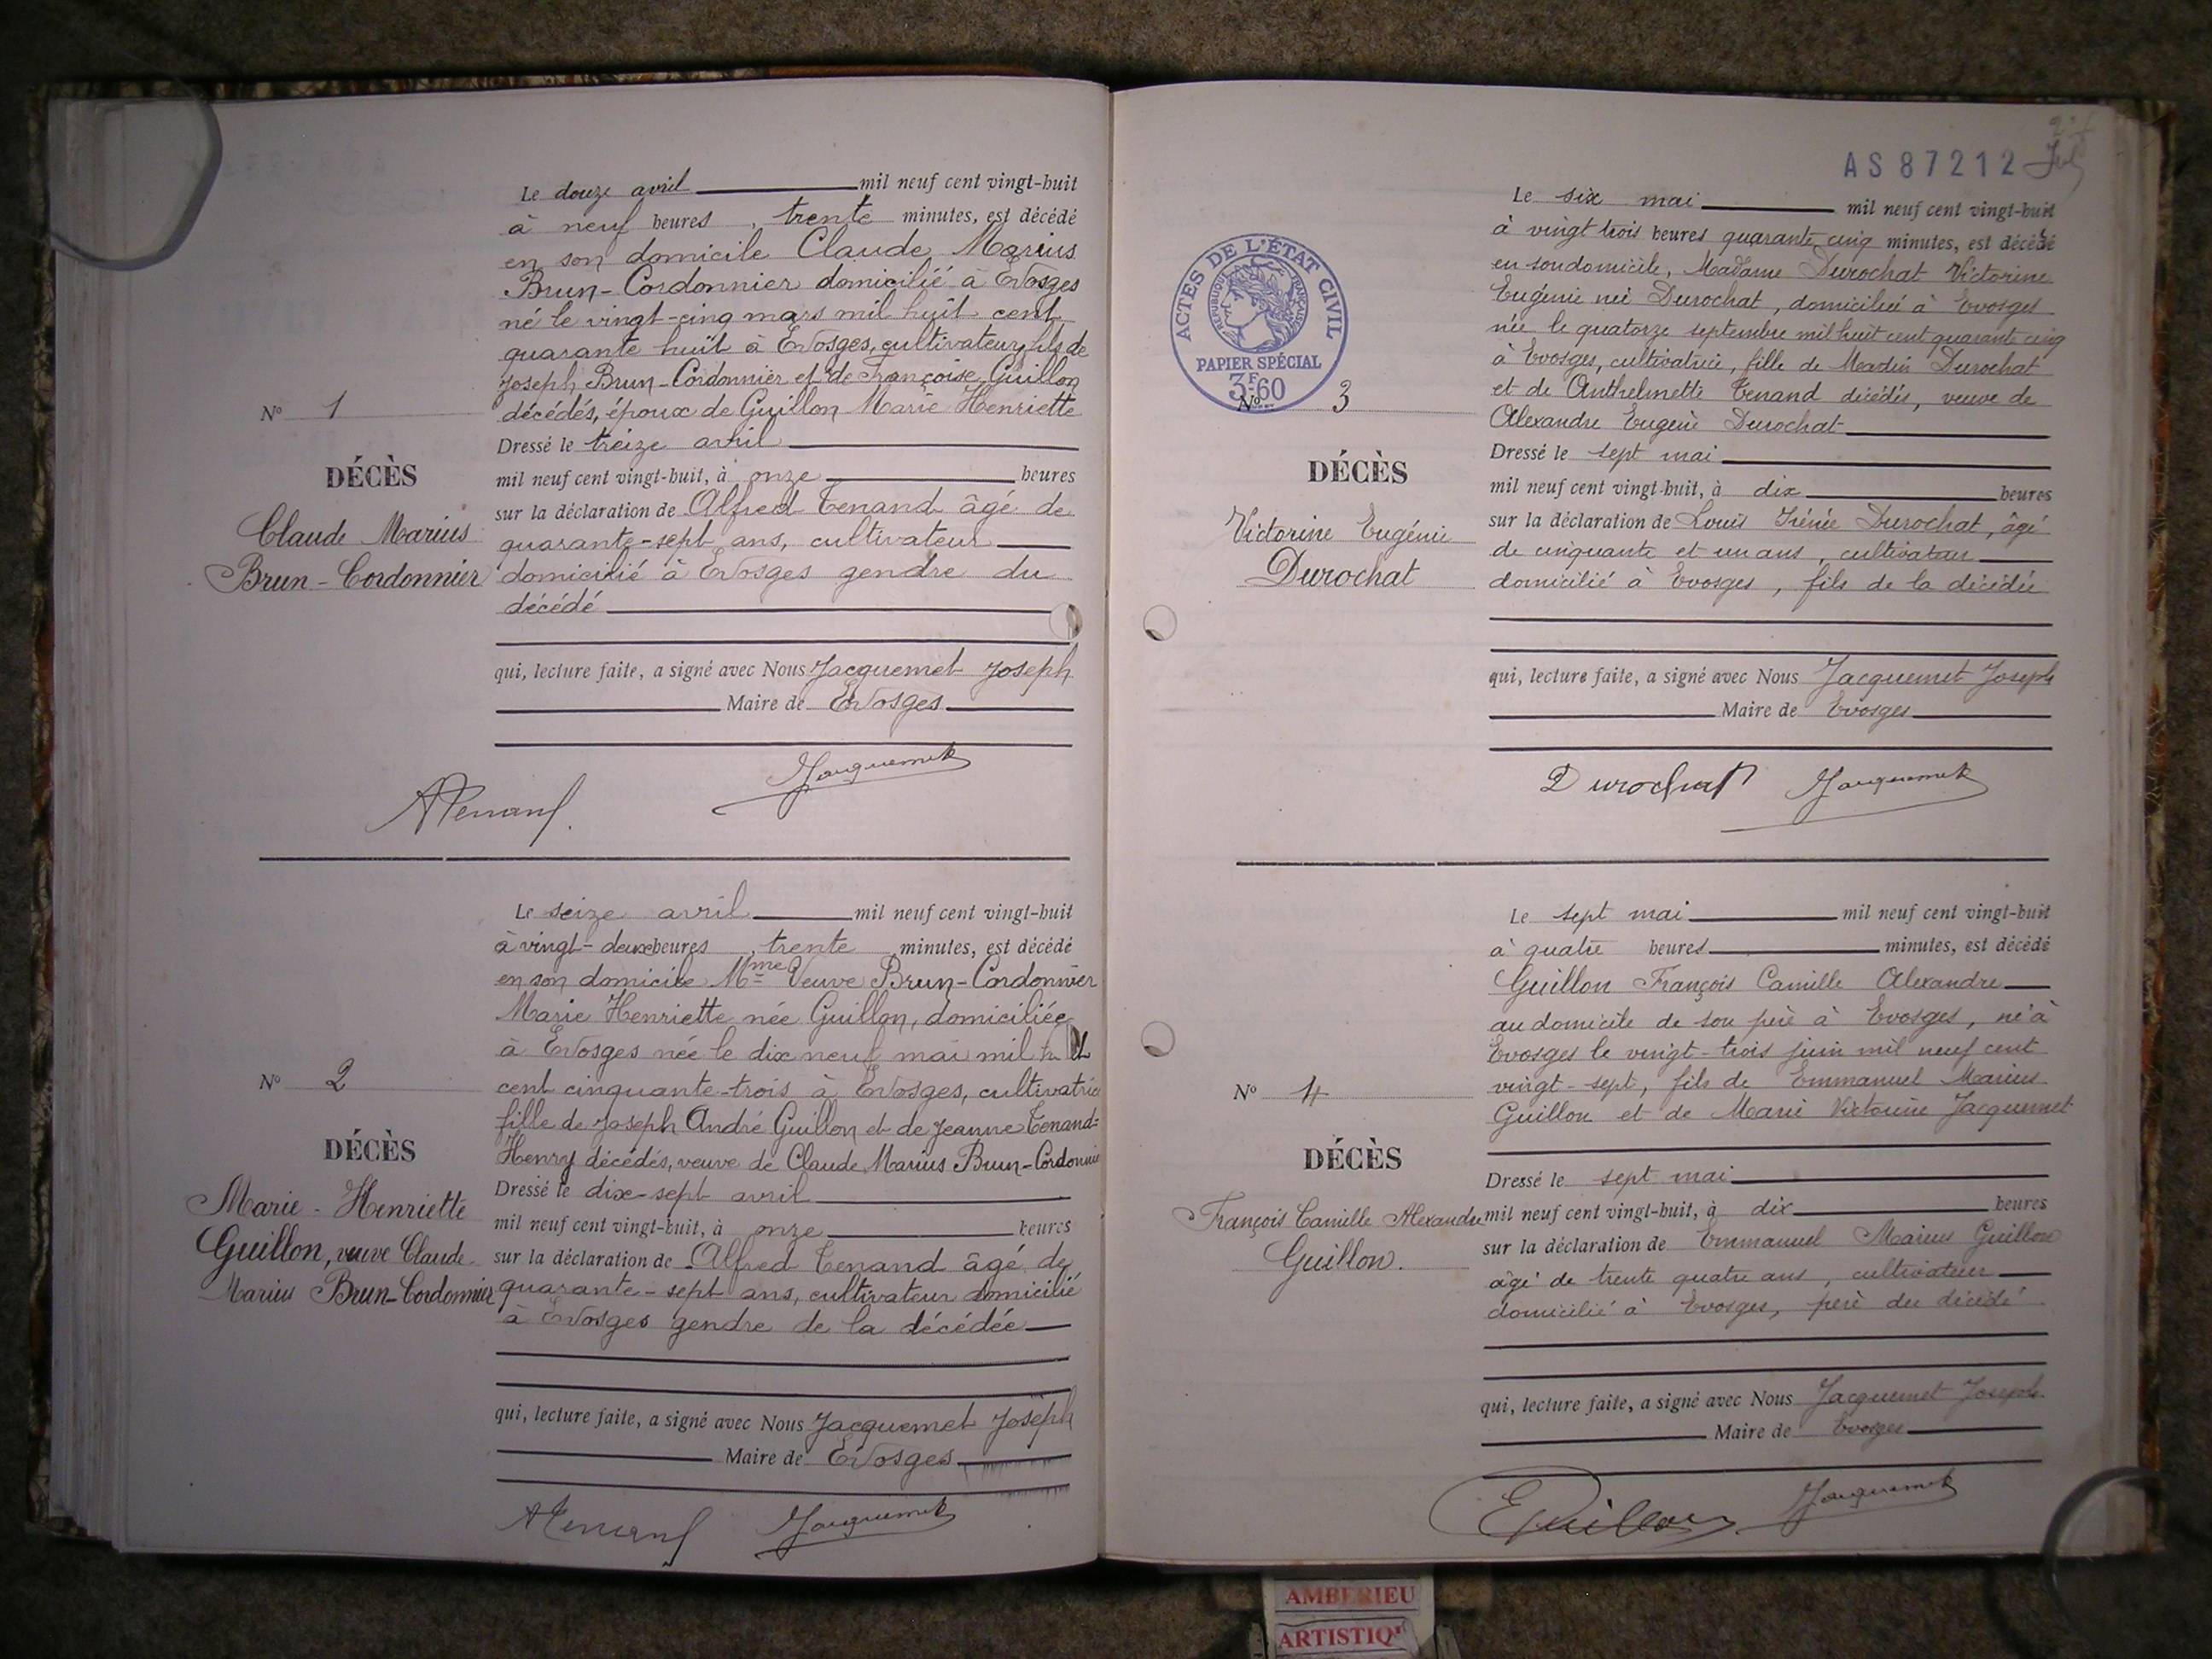 Le douze avril mil neuf cent vingt-huit
à neuf heures, trente minutes, est décédé
en son domicile Claude Marius
Brun-Cordonnier domicilié à Evosges
né le vingt-cinq mars mil huit cent
quarante huit à Evosges, cultivateur, fils de
Joseph Brun-Cordonnier et de Françoise Guillon
décédés, époux de Guillon Marie Henriette
Nº 1
Dressé le treize avril
mil neuf cent vingt-huit, à onze heures
DÉCÈS
Claude Marius
Brun-Cordonnier
sur la déclaration de Alfred Tenand âgé de
quarante-sept ans, cultivateur
domicilié à Evosges gendre du
décédé
qui, lecture faite, a signé avec Nous Jacquemet Joseph
Maire de Evosges
ATenand
Jacquemet
Le seize avril mil neuf cent vingt-huit
à vingt-deux heures, trente minutes, est décédé
en son domicile Mme Veuve Brun-Cordonnier
Marie Henriette née Guillon, domiciliée
à Evosges née le dix neuf mai mil huit
cent cinquante-trois à Evosges, cultivatrice
fille de Joseph André Guillon et de Jeanne Tenand-
Henry décédés, veuve de Claude Marius Brun-Cordonnier
Nº 2
DÉCÈS
Marie-Henriette
Guillon, veuve Claude
Marius Brun-Cordonnier
Dressé le dix-sept avril
mil neuf cent vingt-huit, à onze heures
sur la déclaration de Alfred Tenand âgé de
quarante-sept ans, cultivateur domicilié
à Evosges gendre de la décédée
qui, lecture faite, a signé avec Nous Jacquemet Joseph
Maire de Evosges
ATenand
Jacquemet
AS 87212
ACTES DE L'ÉTAT CIVIL
RÉPUBLIQUE FRANÇAISE
PAPIER SPÉCIAL
3F.60
Le six mai mil neuf cent vingt-huit
à vingt trois heures quarante cinq minutes, est décédé
en son domicile, Madame Durochat Victorine
Eugénie née Durochat, domiciliée à Evosges
née le quatorze septembre mil huit cent quarante cinq
à Evosges, cultivatrice, fille de Durochat
et de Anthelmette Tenand décédés, veuve de
Alexandre Eugène Durochat
Nº 3
DÉCÈS
Victorine Eugénie
Durochat
Dressé le sept mai
mil neuf cent vingt-huit, à dix heures
sur la déclaration de Louis Irénée Durochat, âgé
de cinquante et un ans, cultivateur
domicilié à Evosges, fils de la décédée
qui, lecture faite, a signé avec Nous Jacquemet Joseph
Maire de Evosges
Durochat
Jacquemet
Le sept mai mil neuf cent vingt-huit
à quatre heures minutes, est décédé
Guillon François Camille Alexandre
au domicile de son père à Evosges, né à
Evosges le vingt-trois juin mil neuf cent
vingt-sept, fils de Emmanuel Marius
Guillon et de Marie Victorine Jacquemet
Nº 4
DÉCÈS
François Camille Alexandre
Guillon.
Dressé le sept mai
mil neuf cent vingt-huit, à dix heures
sur la déclaration de Emmanuel Marius Guillon
âgé de trente quatre ans, cultivateur
domicilié à Evosges, père du décédé
qui, lecture faite, a signé avec Nous Jacquemet Joseph
Maire de Evosges
EGuillon
Jacquemet
AMBERIEU
ARTISTIQ